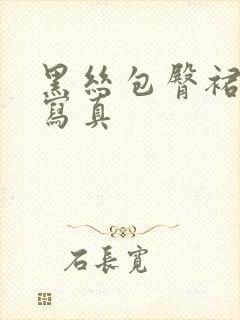 黑絲包臀裙
寫真
石長寬